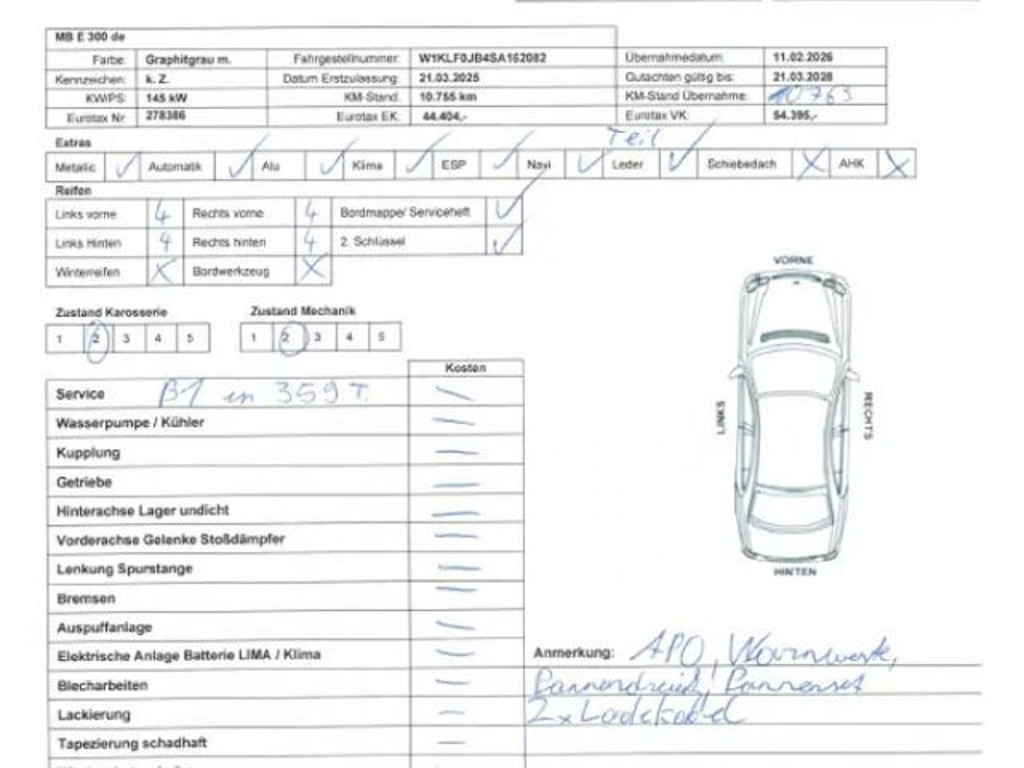 MB E 300 de
Farbe: Graphitgrau m. Fahrgestellnummer: W1KLF0JB4SA162082 Übernahmedatum: 11.02.2026
Kennzeichen: k. Z. Datum Erstzulassung: 21.03.2025 Gutachten gültig bis: 21.03.2028
KW/PS: 145 kW KM-Stand: 10.755 km KM-Stand Übernahme: 10763
Eurotax Nr 278386 Eurotax EK: 44.404,- Eurotax VK: 54.395,-
Extras Teil
Metallic ✓ Automatik ✓ Alu ✓ Klima ✓ ESP ✓ Navi ✓ Leder ✓ Schiebedach X AHK X
Reifen
Links vorne 4 Rechts vorne 4 Bordmappe/ Serviceheft ✓
Links Hinten 4 Rechts hinten 4 2. Schlüssel ✓
Winterreifen X Bordwerkzeug X
Zustand Karosserie Zustand Mechanik
1 2 3 4 5 1 2 3 4 5
Kosten
Service B1 in 359 T. —
Wasserpumpe / Kühler —
Kupplung —
Getriebe —
Hinterachse Lager undicht —
Vorderachse Gelenke Stoßdämpfer —
Lenkung Spurstange —
Bremsen —
Auspuffanlage —
Elektrische Anlage Batterie LIMA / Klima —
Blecharbeiten —
Lackierung —
Tapezierung schadhaft —
VORNE
LINKS
RECHTS
HINTEN
Anmerkung: APO, Warnweste,
Pannendreieck, Pannenset
2x Ladekabel